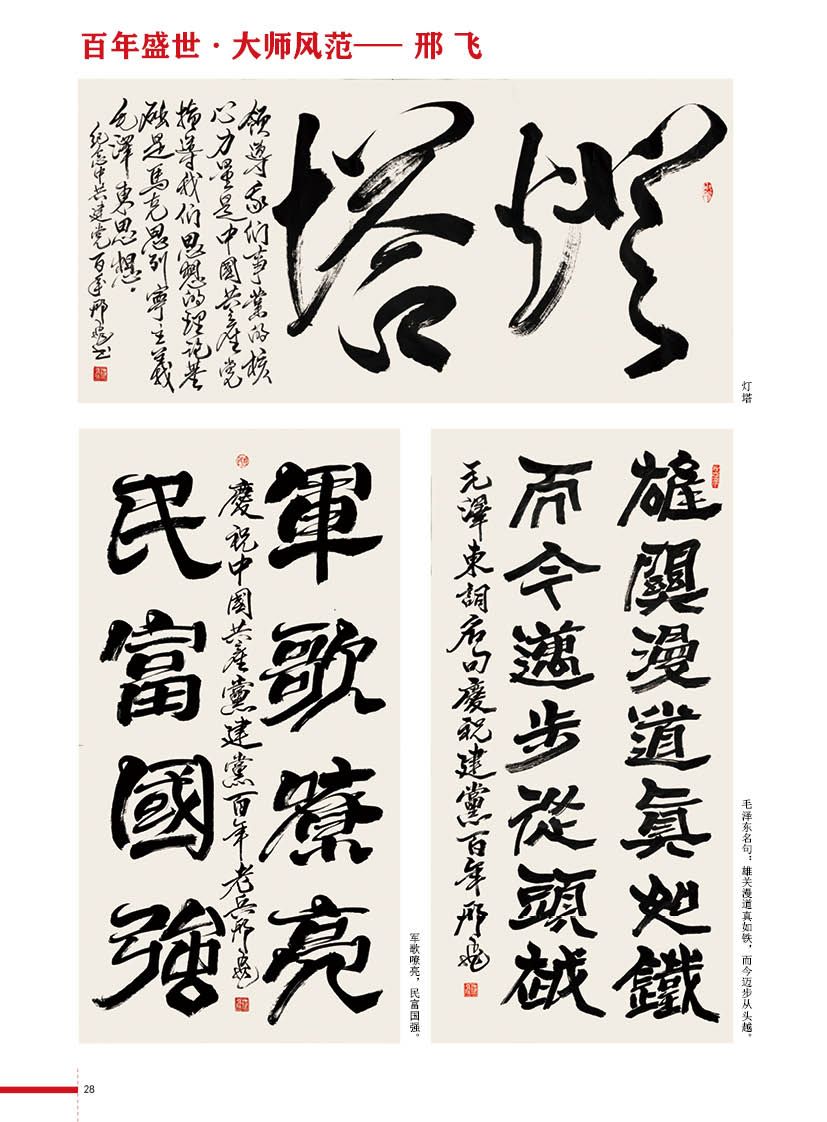 百年盛世·大师风范—— 邢 飞
燈
塔
領導我们事業的核
心力量是中國共產党
指導我们思想的理论基
础是馬克思列寧主義
毛澤東思想。
纪念中共建党百年邢飛书
灯塔
軍歌嘹亮
慶祝中國共產黨建黨百年老兵邢飛
民富國強
军歌嘹亮，民富国强。
雄関漫道真如鐵
而今邁步從頭越
毛澤東詞名句慶祝建黨百年邢飛
毛泽东名句：雄关漫道真如铁，而今迈步从头越。
28